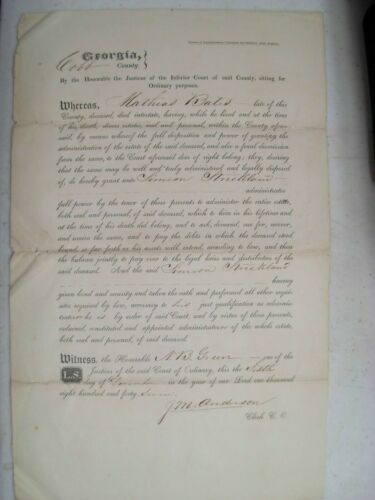 Georgia,
Cobb County.
By the Honorable the Justices of the Inferior Court of said County, sitting for
Ordinary purposes.
Whereas, Mathias Bates late of this
County, deceased, died intestate, having, while he lived and at the
time of his death, divers estate, real and personal, within the County afore-
said, by means whereof the full disposition and power of granting the
administration of the estate of the said deceased, and also a final dismission
from the same, to the Court aforesaid does of right belong; they, desiring
that the same may be well and truly administered and legally disposed
of, do hereby grant unto Simeon Strickland
administrator
full power by the tenor of these presents to administer the entire estate,
both real and personal, of said deceased, which to him in his lifetime and
at the time of his death did belong, and to ask, demand, sue for, recover,
and receive the same, and to pay the debts in which the deceased stood
bound, so far forth as his assets will extend, according to law, and then
the balance jointly to pay over to the legal heirs and distributees of the
said deceased. And the said Simeon Strickland
having
given bond and security and taken the oath and performed all other requi-
sites required by law, necessary to his just qualification as adminis-
trator he is by order of said Court, and by virtue of these presents,
ordained, constituted and appointed administrator of the whole estate,
both real and personal, of said deceased.
Witness, the Honorable N. B. Green one of the
L.S.
Justices of the said Court of Ordinary, this the
day of in the year of our Lord one thousand
eight hundred and forty seven
J M Anderson
Clerk C. O.